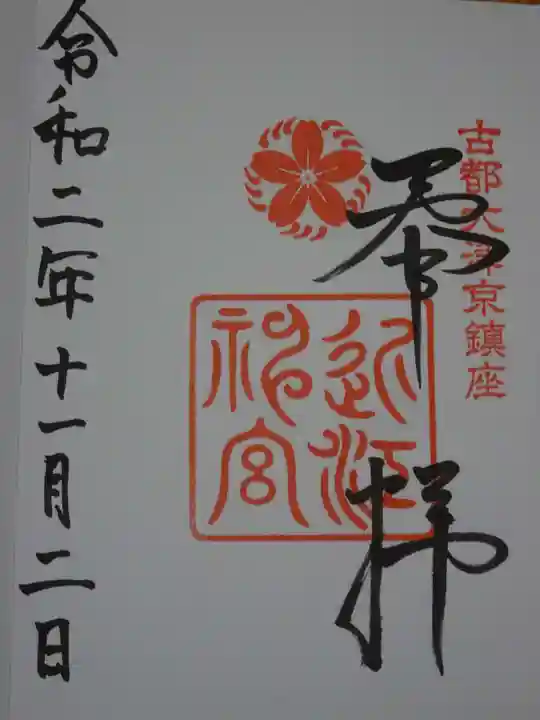 古都大津京鎮座
奉拝
近江
神宮
令和二年十一月二日